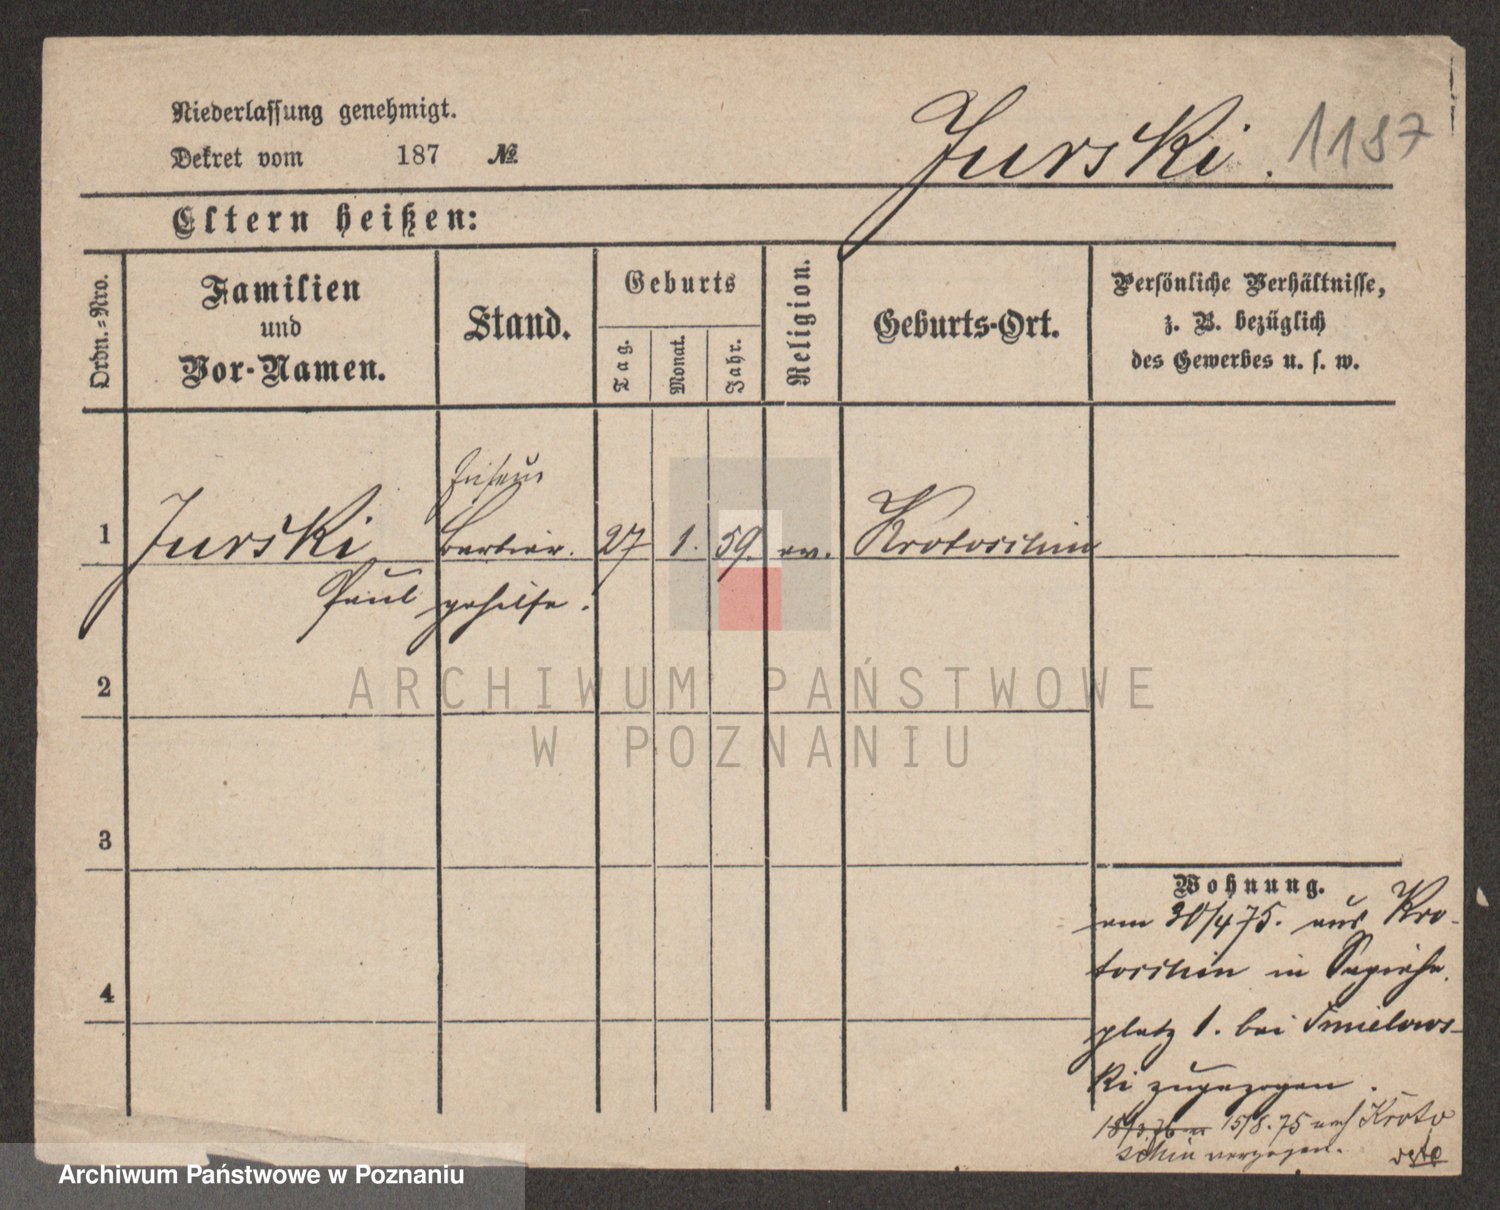 Niederlassung genehmigt.
Dekret vom 187 №
Jurski. 1187
Eltern heißen:
Ordn.-Nro.
Familien
und
Vor-Namen.
Stand.
Geburts
Tag.
Monat.
Jahr.
Religion.
Geburts-Ort.
Persönliche Verhältnisse,
z. B. bezüglich
des Gewerbes u. s. w.
Friseur
1 Jurski Barbier. 27 1. 59. ev. Krotoschin
Paul gehilfe.
ARCHIWUM PAŃSTWOWE
2
W POZNANIU
3
Wohnung.
am 30/4 75. aus Kro-
toschin in Sapieha
4
platz 1. bei Smielows-
ki zugezogen.
15/8. 75 nach Kroto
schin verzogen.
Archiwum Państwowe w Poznaniu